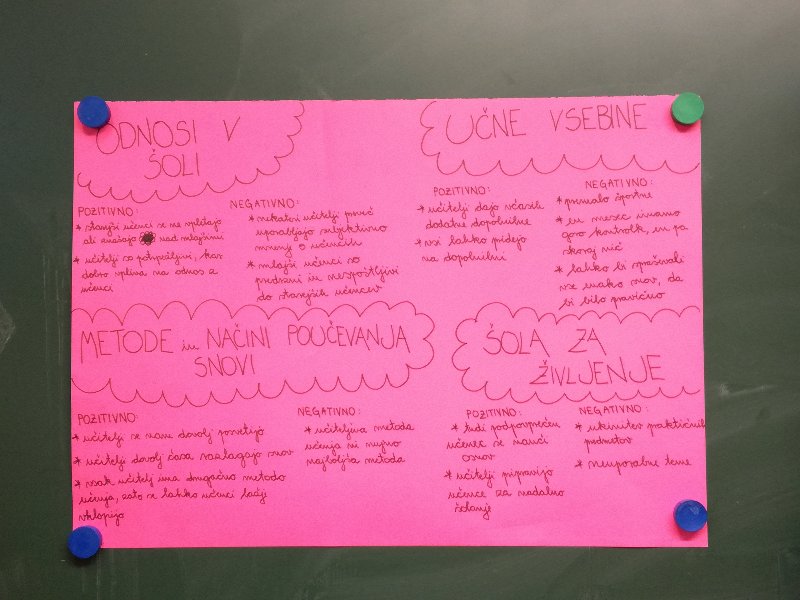 ODNOSI V
ŠOLI
POZITIVNO:
* starejši učenci se ne vpletajo
ali znašajo nad mlajšimi
* učitelji so potrpežljivi, kar
dobro vpliva na odnos z
učenci
NEGATIVNO:
* nekateri učitelji preveč
uporabljajo subjektivno
mnenje o učencih
* mlajši učenci so
predrzni in nespoštljivi
do starejših učencev
UČNE VSEBINE
POZITIVNO:
* učitelji dajo včasih
dodatne dopolnilne
* vsi lahko pridejo
na dopolnilni
NEGATIVNO:
* premalo športne
* en mesec imamo
goro kontrolk, en pa
skoraj nič
* lahko bi spraševali
vse enako snov, da
bi bilo pravično
METODE in NAČINI POUČEVANJA
SNOVI
POZITIVNO:
* učitelji se nam dovolj posvetijo
* učitelji dovolj časa razlagajo snov
* vsak učitelj ima drugačno metodo
učenja, zato se lahko učenci lažje
vklopijo
NEGATIVNO:
* učiteljeva metoda
učenja ni nujno
najboljša metoda
ŠOLA ZA
ŽIVLJENJE
POZITIVNO:
* tudi podpovprečen
učenec se nauči
osnov
* učitelji pipravijo
učence za nadalno
šolanje
NEGATIVNO:
* ukinitev praktičnih
predmetov
* neuporabne teme